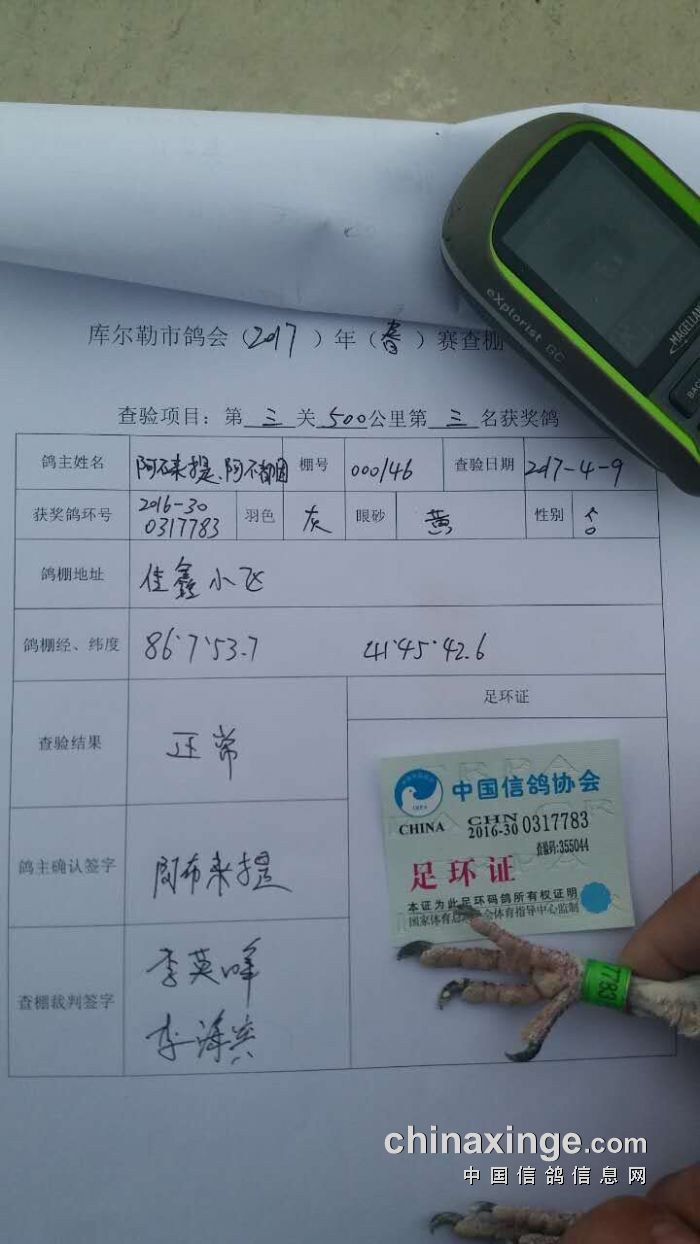 eXplorist GC
MAGELLAN
BAC
库尔勒市鸽会（2017）年（春）赛查棚
查验项目：第 三 关 500公里第 三 名获奖鸽
鸽主姓名 阿不来提、阿不都因 棚号 000146 查验日期 2017-4-9
获奖鸽环号 2016-30
0317783 羽色 灰 眼砂 黄 性别
鸽棚地址 佳鑫小飞
鸽棚经、纬度 86°7'53.7 41°45'42.6
足环证
查验结果 正常
中国信鸽协会
CHINA CHN
2016-30 0317783
查验码:355044
足环证
本证为此足环码鸽所有权证明
国家体育总 会体育指导中心监制
鸽主确认签字 阿布来提
查棚裁判签字 李英峰
李海
7783
chinaxinge.com
中国信鸽信息网